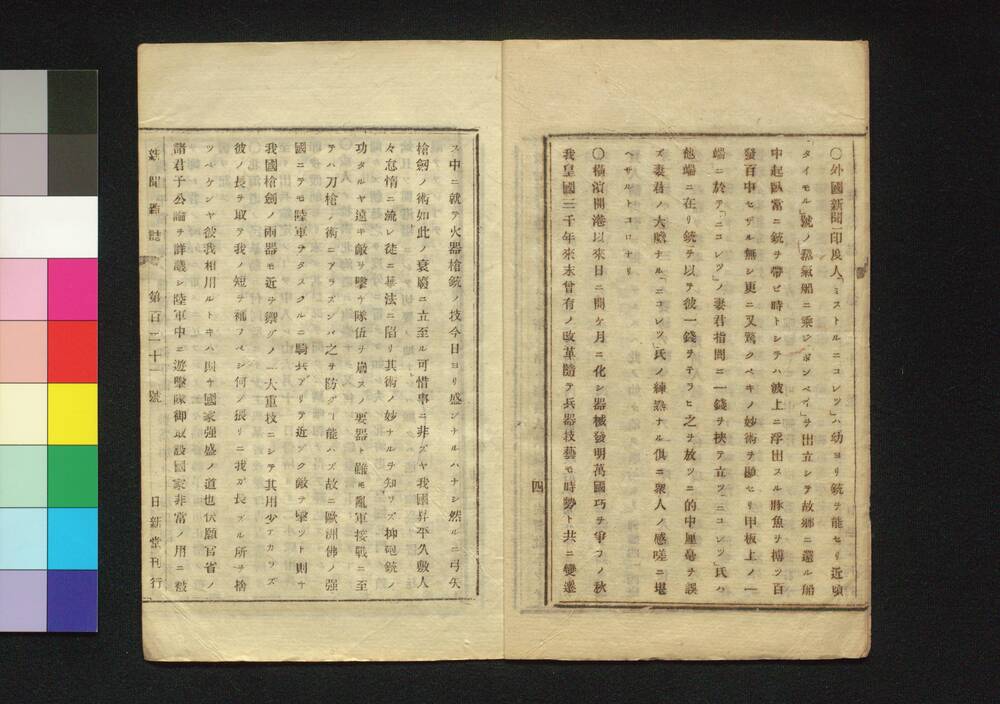 〇外國新聞ニ印度人「ミストルニコレツ」ハ幼ヨリ銃ヲ能セリ近頃
タイモル」號ノ蒸氣船ニ乘ジ「ボンベイ」ヲ出立シテ故鄉ニ還ル船
中起臥常ニ銃ヲ帶ビ時トシテハ波上ニ浮出スル豚魚ヲ搏ツ百
發百中セザル無シ更ニ又驚クベキノ妙術ヲ顯セリ甲板上ノ一
端ニ於テ「ニコレツ」ノ妻君指間ニ一錢ヲ挾テ立ツ「ニコレツ」氏ハ
他端ニ在リ銃ヲ以テ彼一錢ヲテラヒ之ヲ放ツニ的中厘毫ヲ誤
ズ妻君ノ大膽ナル「ニコレツ」氏ノ練熟ナル俱ニ衆人ノ感嗟ニ堪
ヘサルトコロナリ
〇橫濱開港以來日ニ開ケ月ニ化シ器械發明萬國巧ヲ爭フノ秋
我皇國三千年來未曾有ノ改革隨テ兵器技藝モ時勢ト共ニ變遷
四
ス中ニ就テ火器槍銃ノ技今日ヨリ盛ンナルハナシ然ルニ弓矢
槍劍ノ術如此ノ衰廢ニ立至ル可惜事ニ非ズヤ我國昇平久敷人
々怠惰ニ流レ徒ニ法ニ陷リ其術ノ妙ナルヲ知ラズ抑砲銃ノ
功タルヤ遠キ敵ヲ擊ケ隊伍ヲ崩スノ要器ト雖モ亂軍接戰ニ至
テハ刀槍ノ術ニアラズンバ之ヲ防グ能ハズ故ニ歐洲佛ノ强
國ニテモ陸軍ヲタスクルニ騎兵アリテ近ヅク敵ヲ擊ツト則チ
我國槍劍ノ兩器モ近ヲ禦グノ一大重技ニシテ其用少ナカラズ
彼ノ長ヲ取テ我ノ短ヲ補フベシ何ノ据リニ我ガ長ズル所ヲ捨
ツベケンヤ彼我相用ルトキハ國家强盛ノ道也伏願官省ノ
諸君子公論ヲ詳議シ陸軍中ニ遊擊隊御取設國家非常ノ用ニ
新聞雜誌 第百二十一號 日新堂刊行